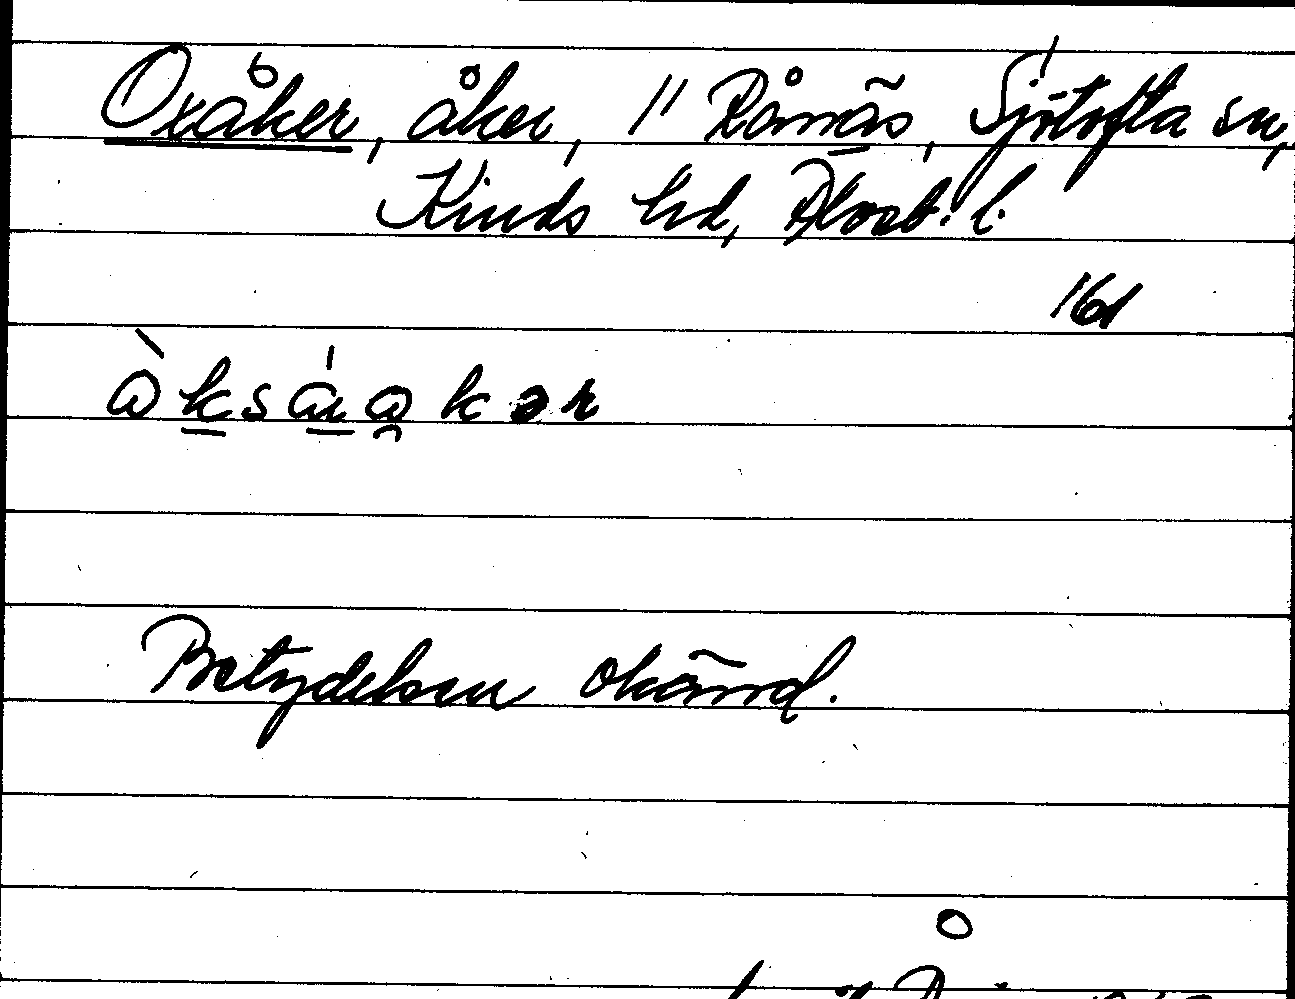 Oxåker, åker, 11 Rånnäs, Sjötofta sn,
Kinds hd, Älvsb. l.
161
Betydelsen okänd.